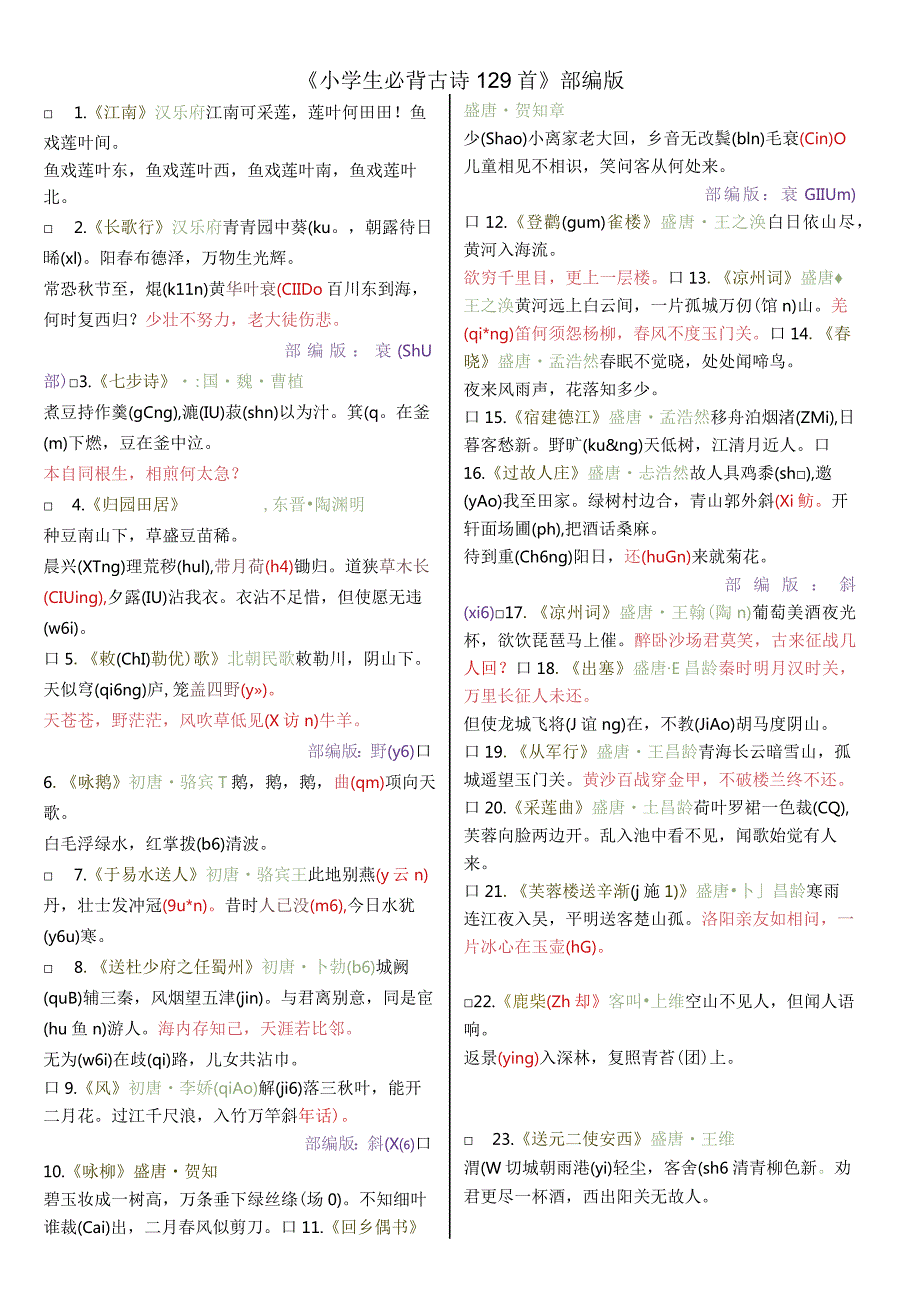 《小学生必背古诗129首》部编版
□ 1.《江南》汉乐府江南可采莲，莲叶何田田！鱼
戏莲叶间。
鱼戏莲叶东，鱼戏莲叶西，鱼戏莲叶南，鱼戏莲叶
北。
□ 2.《长歌行》汉乐府青青园中葵(ku。，朝露待日
晞(xl)。阳春布德泽，万物生光辉。
常恐秋节至，焜(k11n)黄华叶衰(CIIDo百川东到海，
何时复西归？少壮不努力，老大徒伤悲。
部编版：衰(ShU
部）□3.《七步诗》・:国・魏・曹植
煮豆持作羹(gCng),漉(IU)菽(shn)以为汁。箕(q。在釜
(m)下燃，豆在釜中泣。
本自同根生，相煎何太急？
□ 4.《归园田居》 ,东晋•陶渊明
种豆南山下，草盛豆苗稀。
晨兴(XTng)理荒秽(hul),带月荷(h4)锄归。道狭草木长
(CIUing),夕露(IU)沾我衣。衣沾不足惜，但使愿无违
(w6i)。
口 5.《敕(ChI)勒优）歌》北朝民歌敕勒川，阴山下。
天似穹(qi6ng)庐,笼盖四野(y»)。
天苍苍，野茫茫，风吹草低见(X访n)牛羊。
部编版：野(y6)口
6. 《咏鹅》初唐・骆宾T鹅，鹅，鹅，曲(qm)项向天
歌。
白毛浮绿水，红掌拨(b6)清波。
□ 7.《于易水送人》初唐・骆宾王此地别燕(y云n)
丹，壮士发冲冠(9u*n)。昔时人已没(m6),今日水犹
(y6u)寒。
□ 8. 《送杜少府之任蜀州》初唐・卜勃(b6)城阙
(quB)辅三秦，风烟望五津(jin)。与君离别意，同是宦
(hu鱼n)游人。海内存知己，天涯若比邻。
无为(w6i)在歧(qi)路，儿女共沾巾。
口 9.《风》初唐・李娇(qiAo)解(ji6)落三秋叶，能开
二月花。过江千尺浪，入竹万竿斜年话）。
部编版：斜(X⑹口
10.《咏柳》盛唐・贺知
碧玉妆成一树高，万条垂下绿丝绦(场0)。不知细叶
谁裁(Cai)出，二月春风似剪刀。口 11.《回乡偶书》
盛唐・贺知章
少(Shao)小离家老大回，乡音无改鬓(bln)毛衰(Cin)O
儿童相见不相识，笑问客从何处来。
部编版：衰GIIUm)
口 12.《登鹳(gum)雀楼》盛唐・王之涣白日依山尽，
黄河入海流。
欲穷千里目，更上一层楼。口 13. 《凉州词》盛唐♦
王之涣黄河远上白云间，一片孤城万仞(馆n)山。羌
(qi*ng)笛何须怨杨柳，春风不度玉门关。口 14. 《春
晓》盛唐・孟浩然春眠不觉晓，处处闻啼鸟。
夜来风雨声，花落知多少。
口 15.《宿建德江》盛唐・孟浩然移舟泊烟渚(ZMi),日
暮客愁新。野旷(ku&ng)天低树，江清月近人。口
16.《过故人庄》盛唐・忐浩然故人具鸡黍(sh□),邀
(yAo)我至田家。绿树村边合，青山郭外斜(Xi鲂。开
轩面场圃(ph),把酒话桑麻。
待到重(Ch6ng)阳日，还(huGn)来就菊花。
部编版：斜
(xi6)□17. 《凉州词》盛唐・王翰（陶n)葡萄美酒夜光
杯，欲饮琵琶马上催。醉卧沙场君莫笑，古来征战几
人回？口 18. 《出塞》盛唐·E昌龄秦时明月汉时关，
万里长征人未还。
但使龙城飞将(J谊ng)在，不教(JiAo)胡马度阴山。
口 19. 《从军行》盛唐・王昌龄青海长云暗雪山，孤
城遥望玉门关。黄沙百战穿金甲，不破楼兰终不还。
口 20. 《采莲曲》盛唐・土昌龄荷叶罗裙一色裁(CQ),
芙蓉向脸两边开。乱入池中看不见，闻歌始觉有人
来。
口 21. 《芙蓉楼送辛渐(j施1)》盛唐•卜」昌龄寒雨
连江夜入吴，平明送客楚山孤。洛阳亲友如相问，一
片冰心在玉壶(hG)。
□22.《鹿柴(Zh却》客叫•上维空山不见人，但闻人语
响。
返景(ying)入深林，复照青苔（团）上。
□ 23.《送元二使安西》盛唐・王维
渭(W切城朝雨港(yi)轻尘，客舍(sh6清青柳色新。劝
君更尽一杯酒，西出阳关无故人。